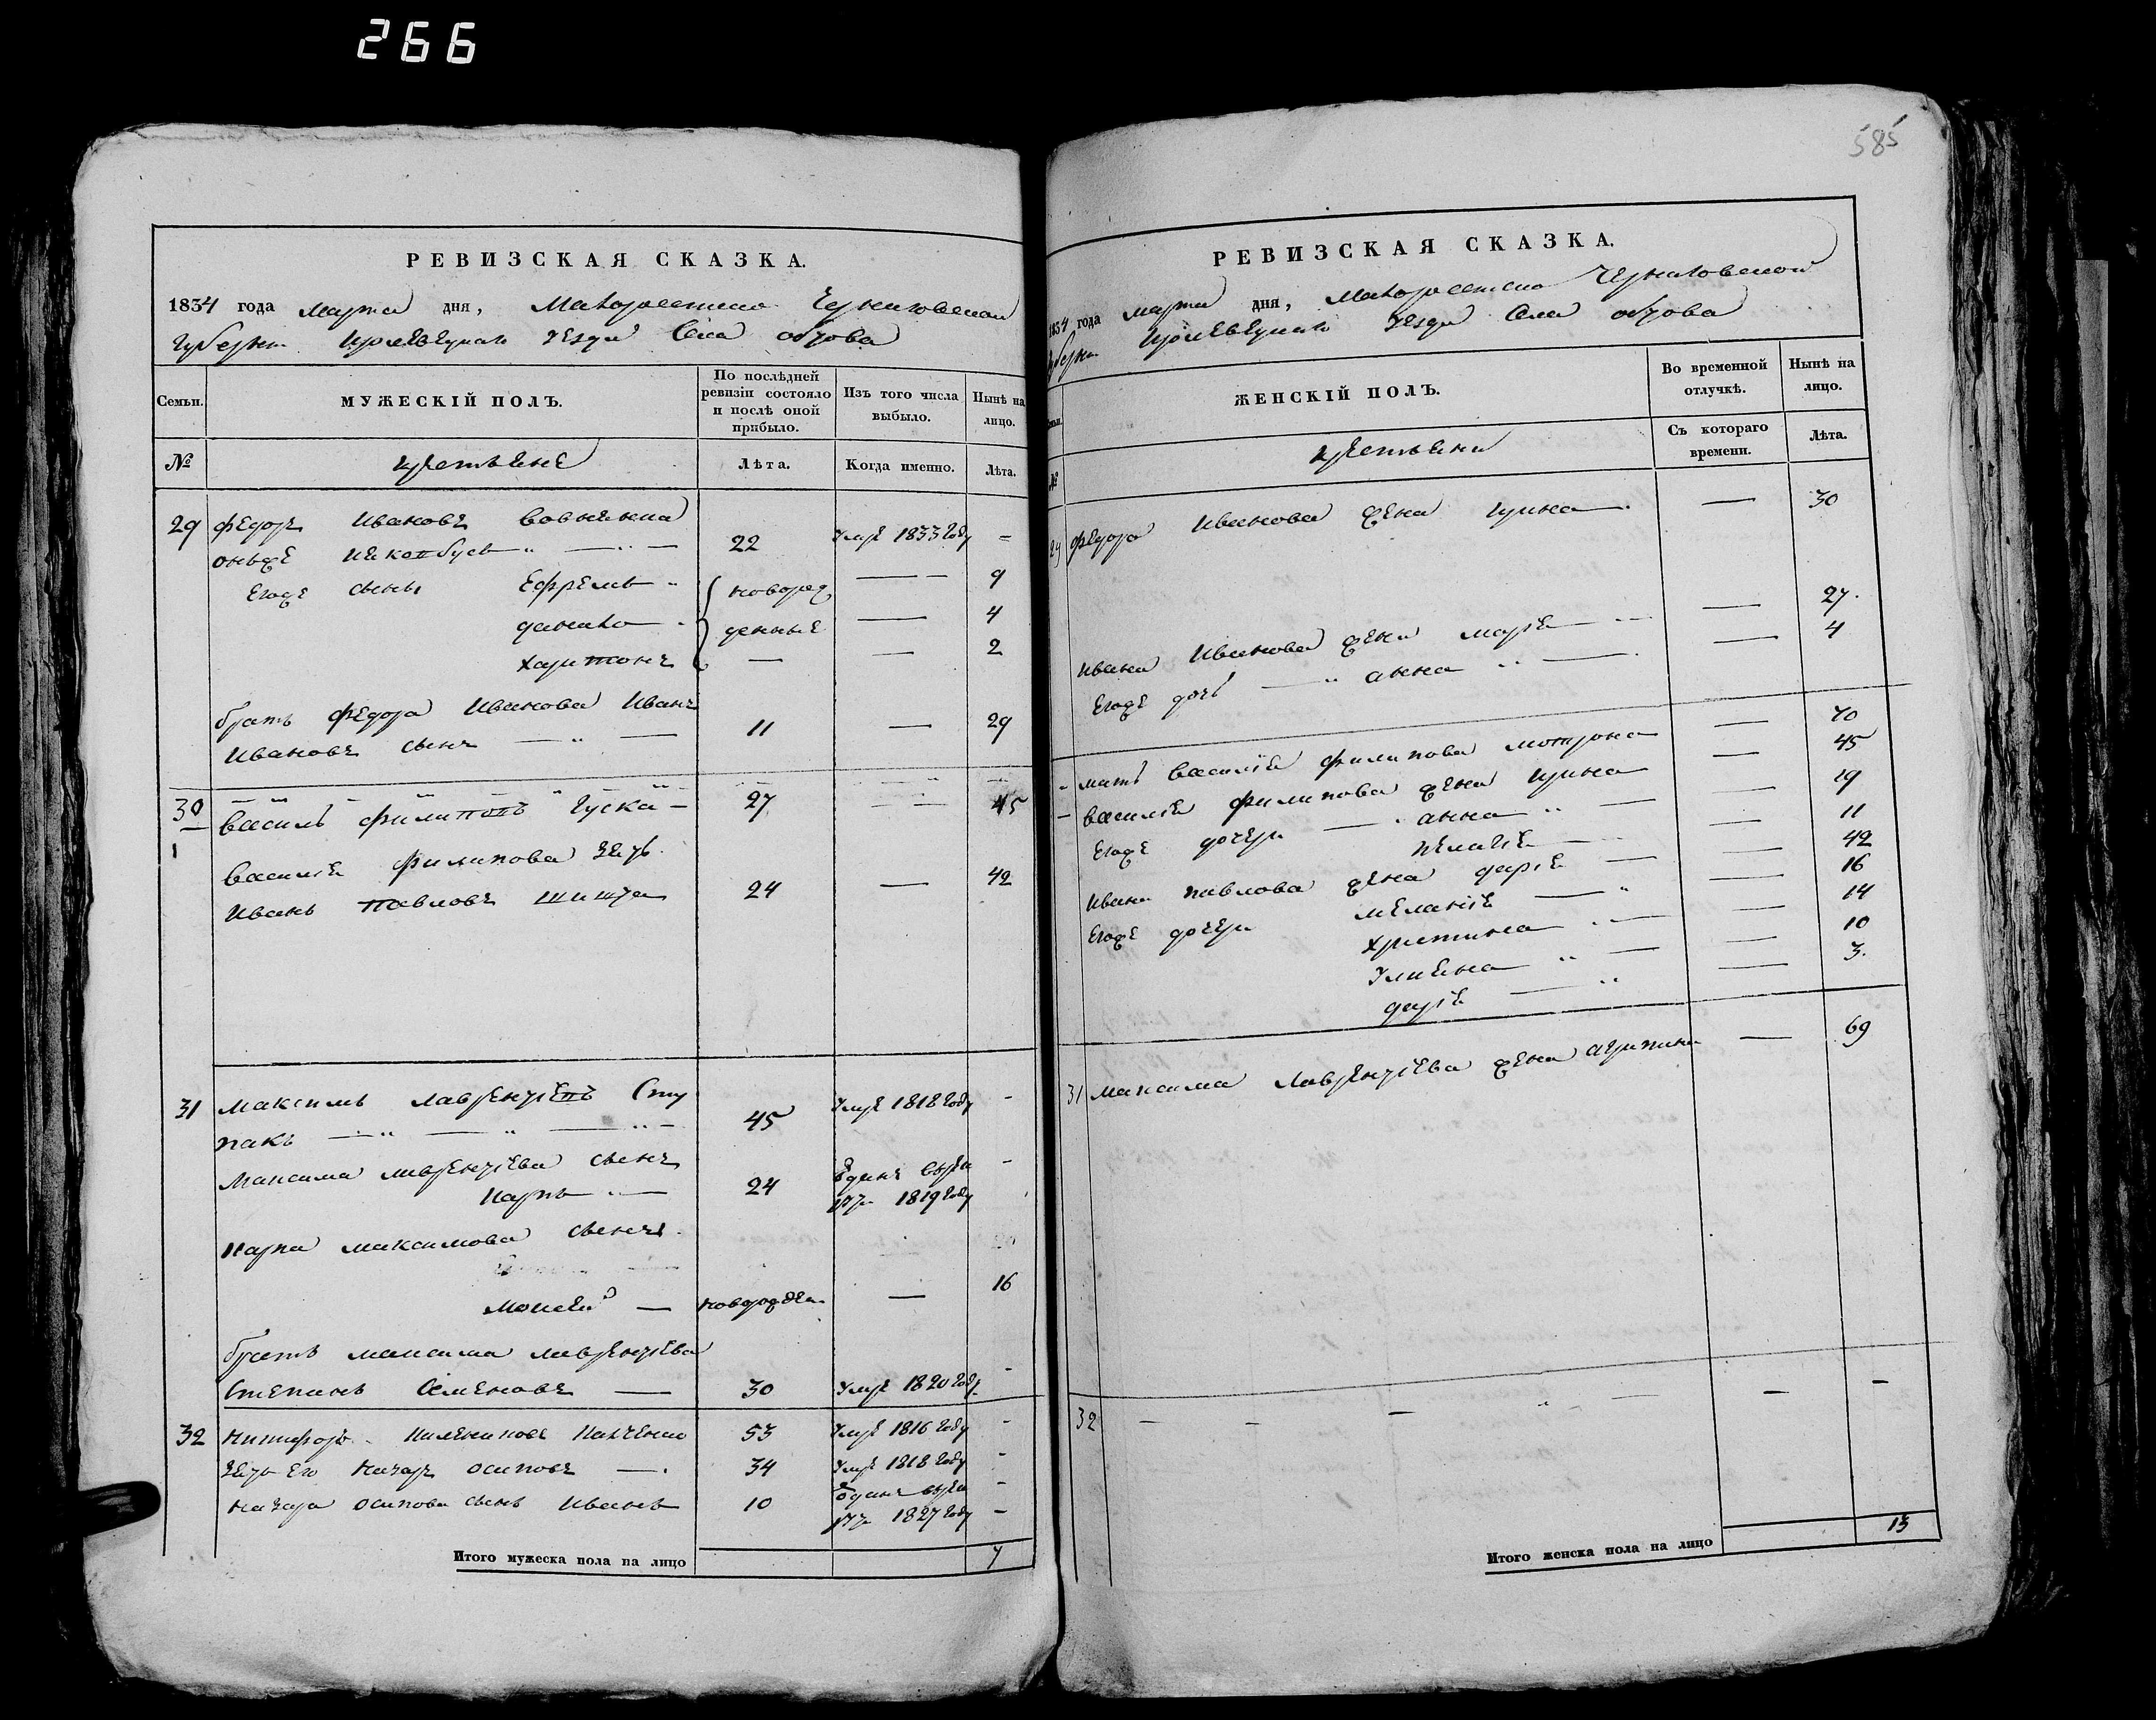 266
585
РЕВИЗСКАЯ СКАЗКА.
1834 года марта дня, Малоросийско Черниговской
Губернии Кролевецкаго уезда Села обтова
Семьи.
МУЖЕСКІЙ ПОЛЪ.
По послѣдней ревизіи состояло и послѣ оной прибыло.
Изъ того числа выбыло.
Нынѣ на лицо.
№ крестьяне Лѣта. Когда именно. Лѣта.
29 Федоръ Ивановъ
оньже 22 умре 1833 году -
Егоже сыны Ефремъ новорож 9
данило денные 4
харитонъ 2
братъ Федора Иванова Иванъ
Ивановъ сынъ 11 29
30 василь филиповъ Гуска 27 45
1
василія филипова зять
Иванъ Павловъ 24 42
31 Максимъ лаврентіевъ Сту
пакъ 45 умре 1818 году -
Максима лаврентіева сынъ
Карпъ 24 1819 году -
Карпа максимова сынъ
Моисей новорожден 16
братъ максима лаврентіева
Степанъ Семеновъ 30 умре 1820 году -
32 Никифоръ 53 умре 1816 году -
зять его Назаръ осиповъ 34 умре 1818 году -
Назара осипова сынъ Иванъ 10 1827 году -
Итого мужеска пола на лицо 7
РЕВИЗСКАЯ СКАЗКА.
1834 года марта дня, Малоросийско Черниговской
Губернии Кролевецкаго уезда Села обтова
Семьи.
ЖЕНСКІЙ ПОЛЪ.
Во временной отлучкѣ.
Нынѣ на лицо.
№ крестьяни Съ котораго времени. Лѣта.
29 Федора Иванова жена Ирина 30
Ивана Иванова жена марія 27.
Егоже дочь анна 4
мать василія филипова мотрона 70
василія филипова жена Ирина 45
Егоже дочери анна 19
пелагія 11
Ивана павлова жена дарія 42
Егоже дочери меланія 16
христина 14
Улияна 10
дарія 3.
31 максима лаврентіева жена агрипина 69
32 - - - - -
Итого женска пола на лицо 13